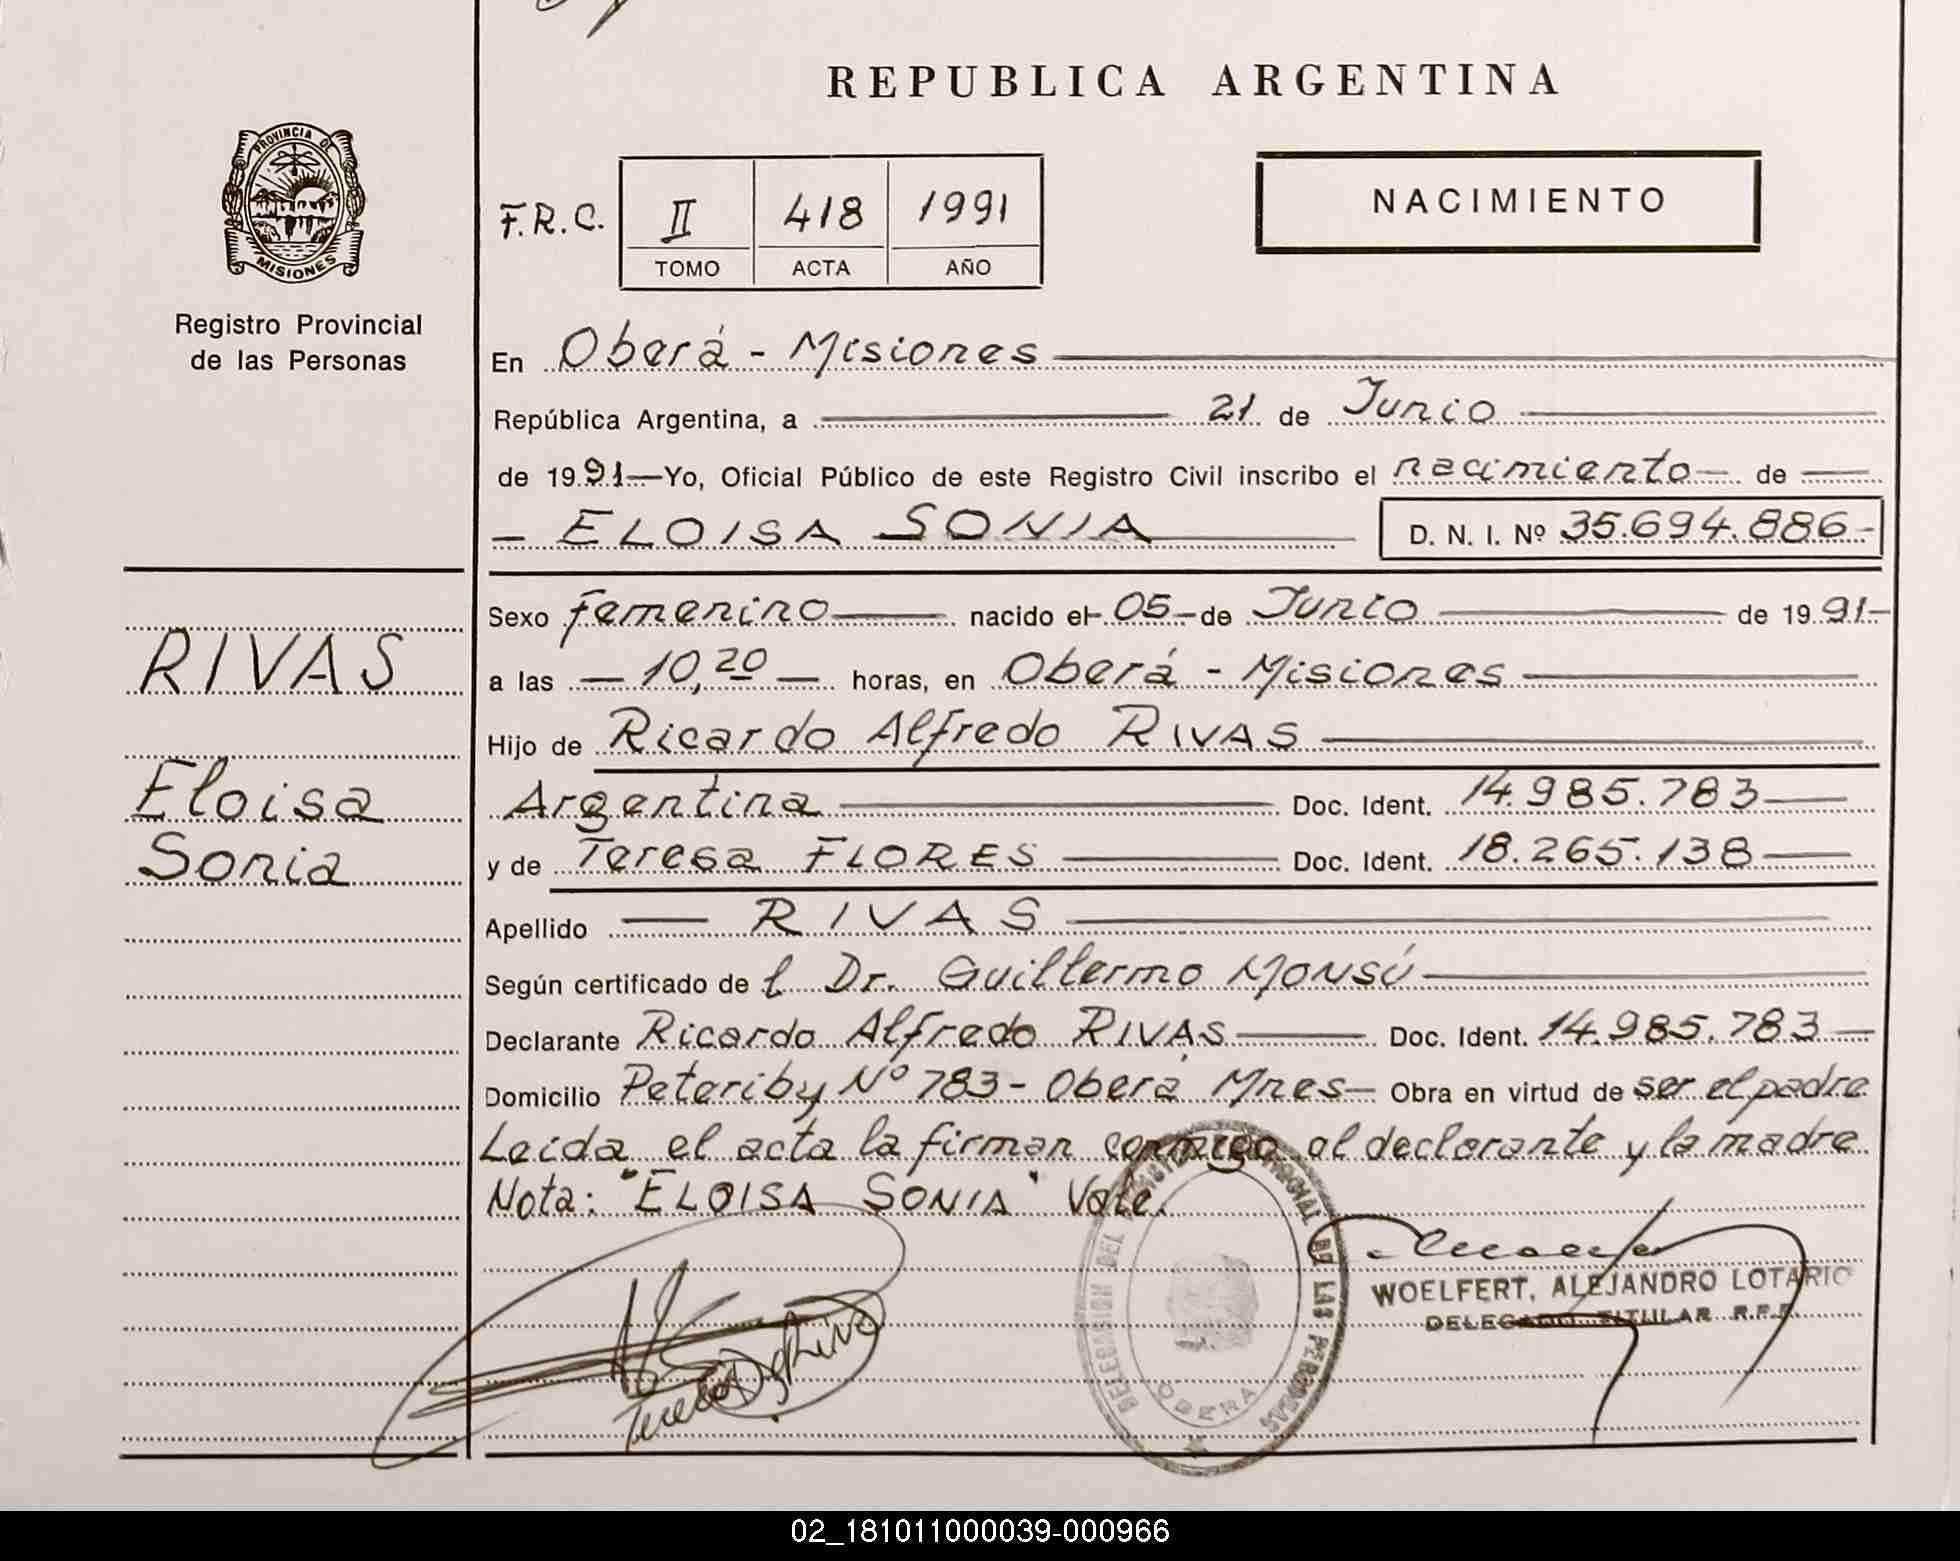 REPUBLICA ARGENTINA
PROVINCIA DE
MISIONES
Registro Provincial
de las Personas
F.R.C. II 418 1991
TOMO ACTA AÑO
NACIMIENTO
En Oberá - Misiones
República Argentina, a 21 de Junio
de 1991 Yo, Oficial Público de este Registro Civil inscribo el nacimiento de
ELOISA SONIA D. N. I. Nº 35.694.886-
Sexo femenino nacido el 05 de Junio de 1991-
RIVAS
a las 10,20 horas, en Oberá - Misiones
Hijo de Ricardo Alfredo RIVAS
Eloisa
Argentina Doc. Ident. 14.985.783
Sonia
y de Teresa FLORES Doc. Ident. 18.265.138
Apellido RIVAS
Según certificado de l Dr. Guillermo Monsú
Declarante Ricardo Alfredo RIVAS Doc. Ident. 14.985.783
Domicilio Peteriby Nº 783 - Oberá Mnes- Obra en virtud de ser el padre
Leida el acta la firman conmigo el declarante y la madre
Nota: "ELOISA SONIA" Vale.
DELEGACION DEL REGISTRO PROVINCIAL DE LAS PERSONAS
OBERA
WOELFERT, ALEJANDRO LOTARIO
DELEGADO TITULAR R.P.P.
02_181011000039-000966